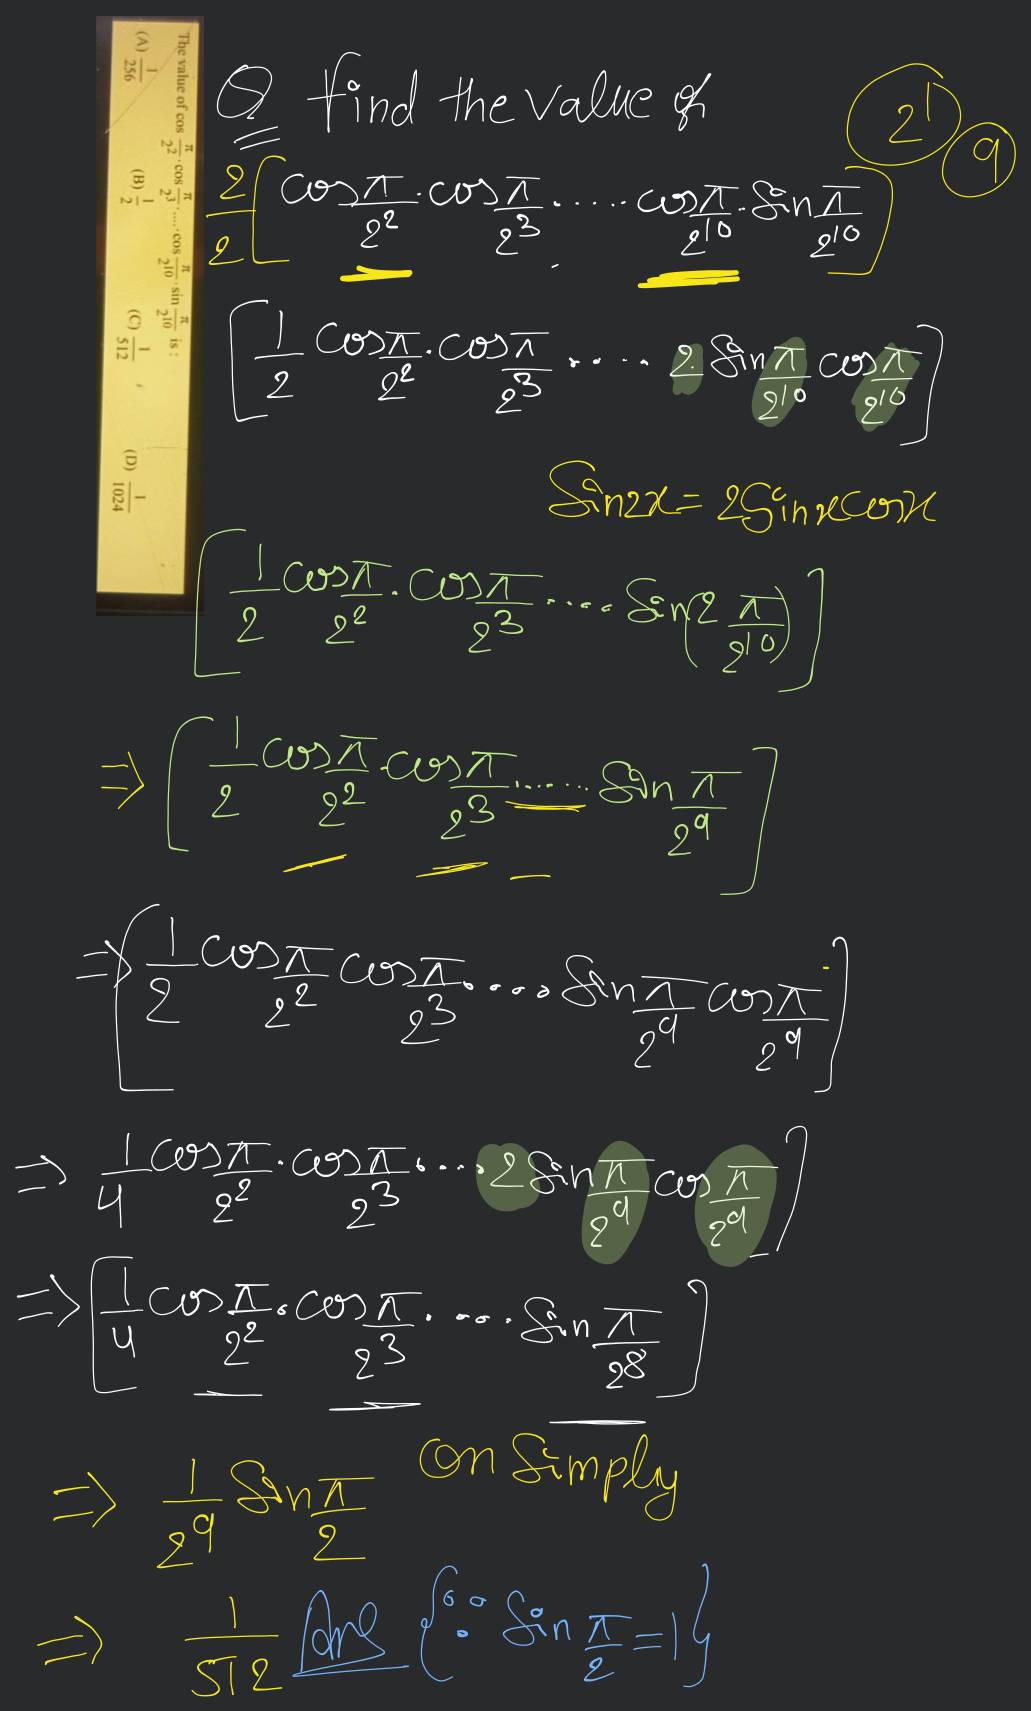 The value of cos π/2² · cos π/2³ ..... cos π/2¹⁰ · sin π/2¹⁰ is :
(A) 1/256 (B) 1/2 (C) 1/512 (D) 1/1024
Q find the value of
2¹ 9
2/2 [cos π/2² · cos π/2³ ...... cos π/2¹⁰ · Sin π/2¹⁰]
[1/2 cos π/2² · cos π/2³ ..... 2 Sin π/2¹⁰ cos π/2¹⁰]
Sin2x = 2Sinxcosx
[1/2 cos π/2² · cos π/2³ ..... Sin(2 π/2¹⁰)]
⇒ [1/2 cos π/2² · cos π/2³ ...... Sin π/2⁹]
⇒ [1/2 cos π/2² cos π/2³ ..... Sin π/2⁹ cos π/2⁹]
⇒ 1/4 cos π/2² · cos π/2³ ..... 2 Sin π/2⁹ cos π/2⁹]
⇒ [1/4 cos π/2² · cos π/2³ ..... Sin π/2⁸]
⇒ 1/2⁹ Sin π/2 on Simply
⇒ 1/512 Ans {∵ Sin π/2 = 1}